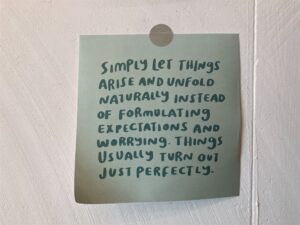 SIMPLY LET THINGS
ARISE AND UNFOLD
NATURALLY INSTEAD
OF FORMULATING
EXPECTATIONS AND
WORRYING. THINGS
USUALLY TURN OUT
JUST PERFECTLY.